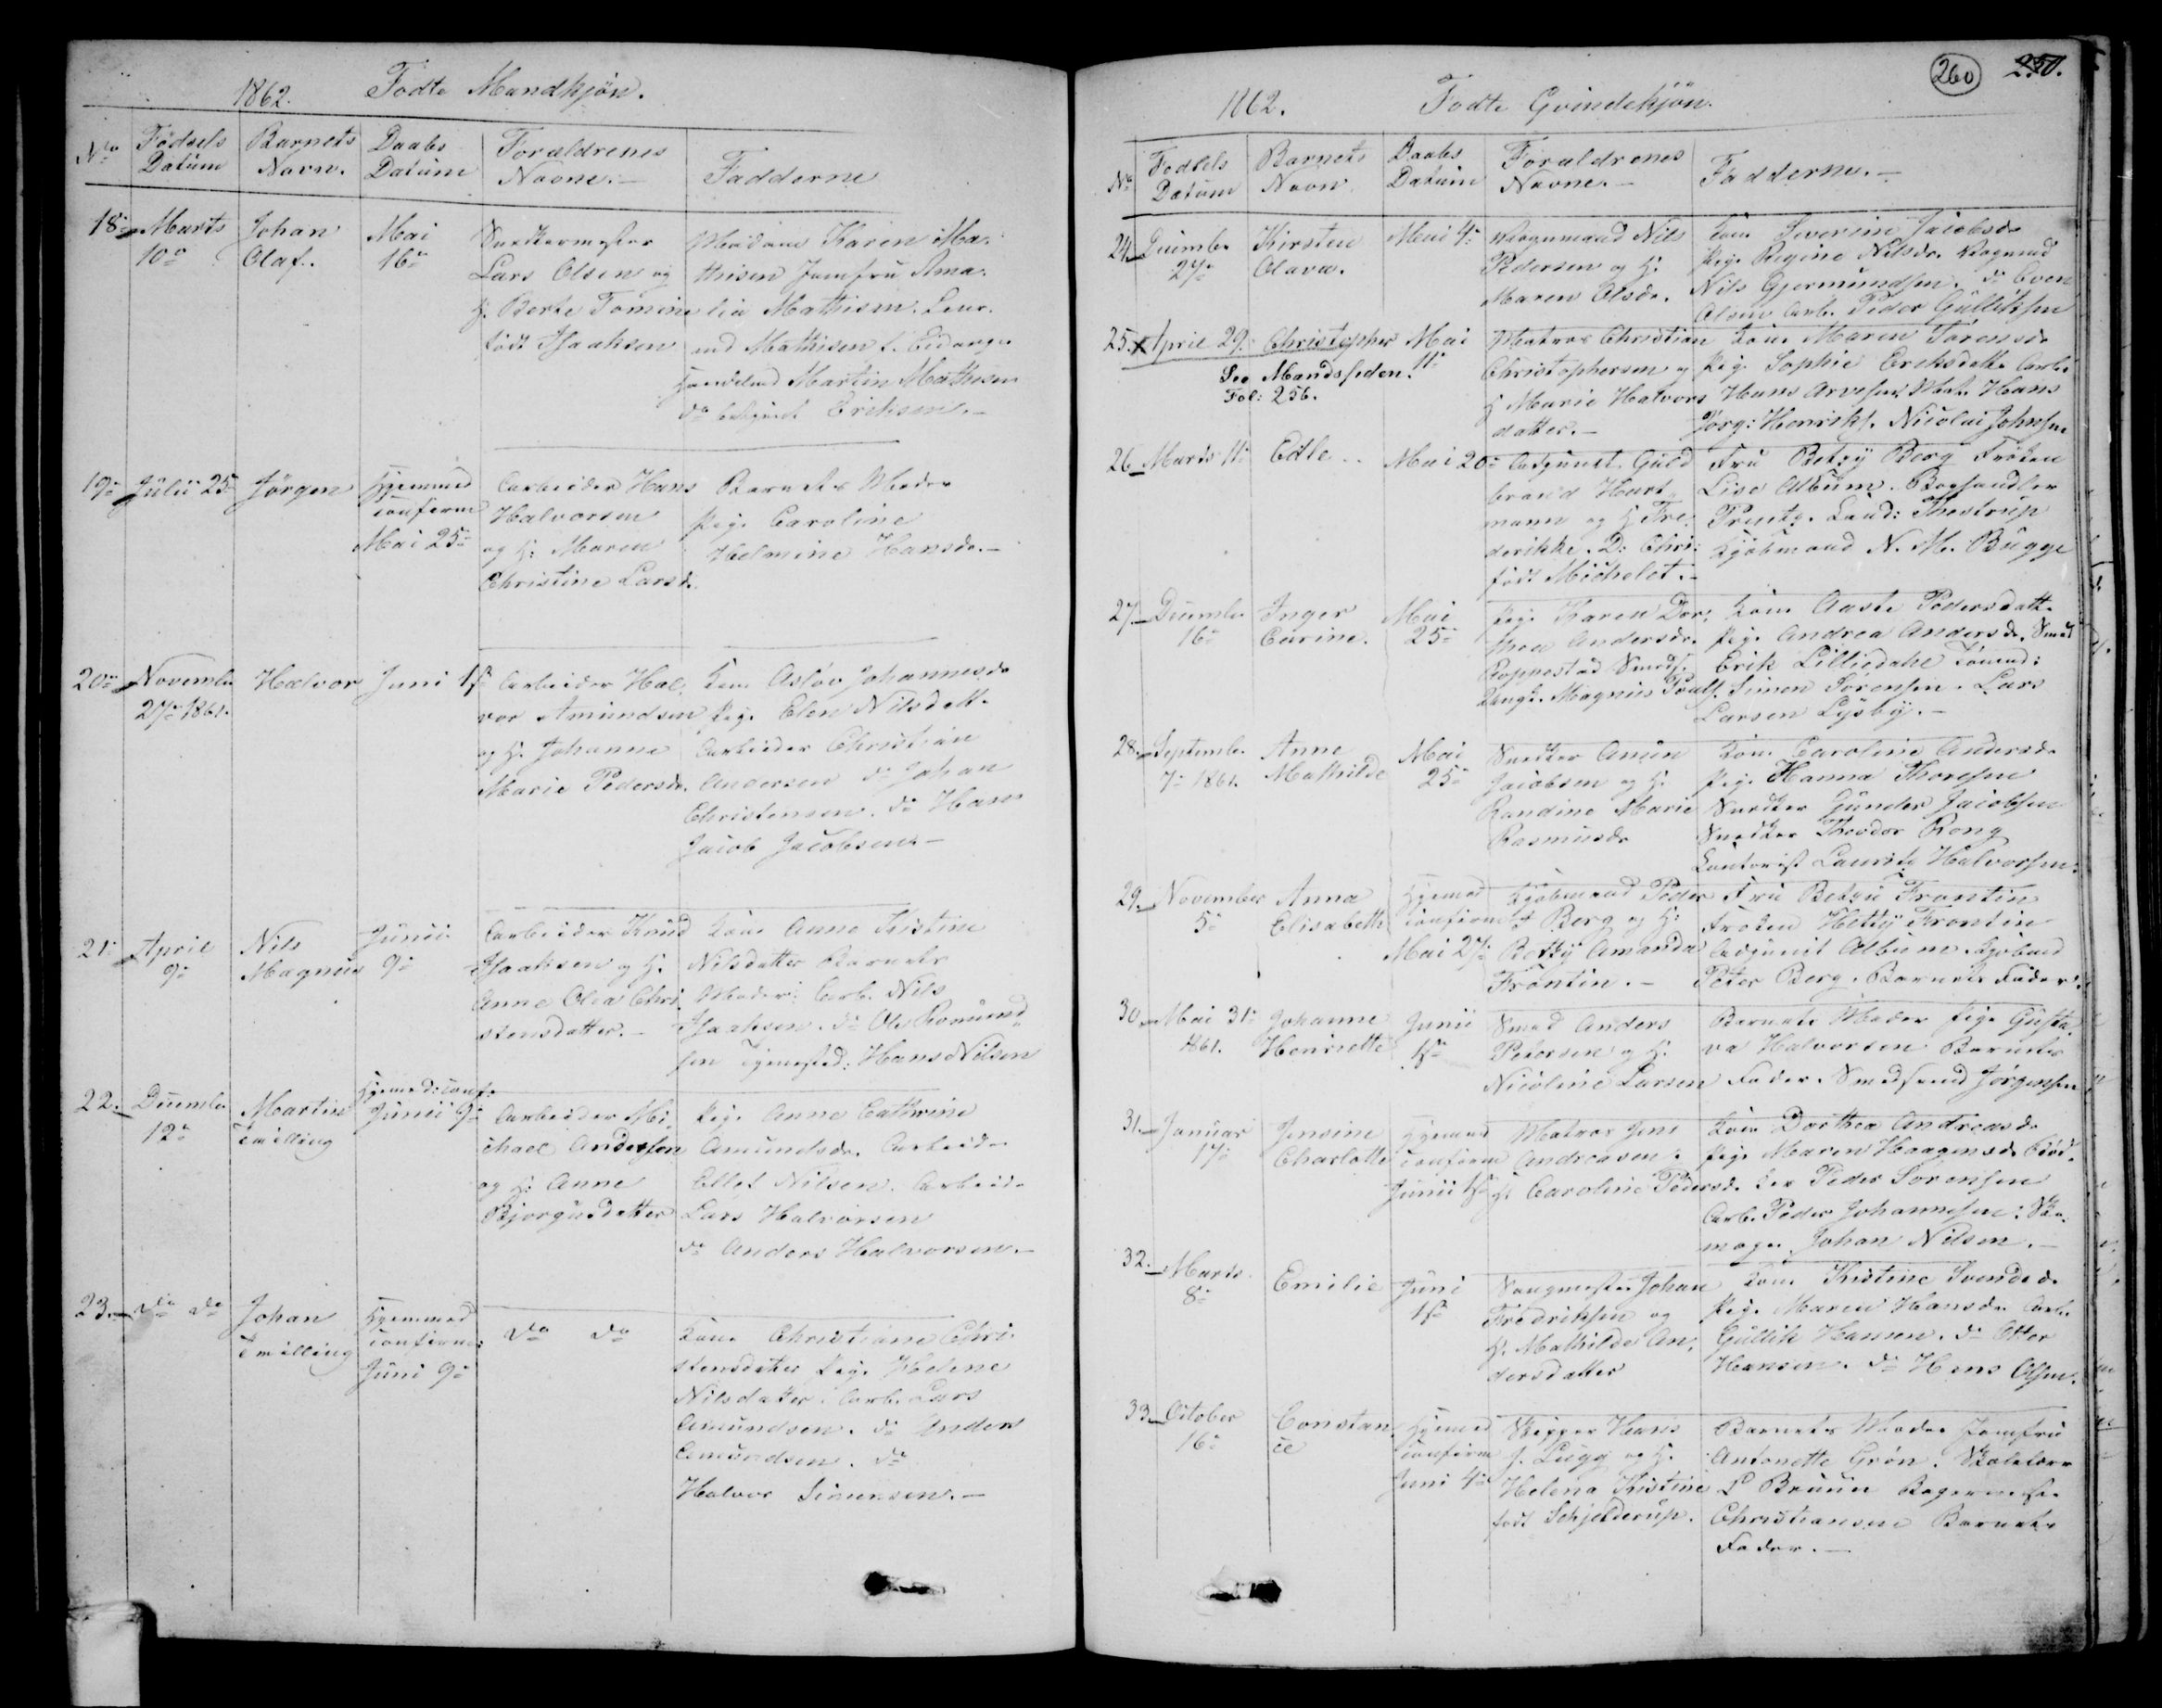 1862. Fødte Mandkjøn.
No Fødsels Datum Barnets Navn. Daabs Datum Forældrenes Navne.— Fadderne
18 Marts 10de Johan Olaf. Mai 16de
Snedkermester
Lars Olsen og
H. Berte Tomine
født Isaaksen
Madam Karen Ma-
thisen Jomfru Ama-
lia Mathisen.
Mathisen f. Eidanger
Martin Mathisen
do Eriksen.—
19de Julii 25 Jørgen Hjemmed confirm Mai 25de
Arbeider Hans
Halvorsen
og H: Maren
Christine Larsd.
Barnets Moder
Pige Caroline
Helmine Hansd.—
20de Novembr 27de 1861. Halvor Juni 1ste
Arbeider Hal-
vor Amundsen
og H. Johanne
Marie Pedersd.
Kone Aslov Johannesd
Pige Elen Nilsdatt.
Arbeider Christian
Andersen do Johan
Christensen. do Hans
Jacob Jacobsen.—
21 April 9de Nils Magnus Junii 9de
Arbeider Knud
Isaaksen og H.
Anne Olea Chri-
stensdatter.—
Kone Anne Kristine
Nilsdatter Barnets
Moder: Arb. Nils
Isaaksen. do Ole Romund-
sen Hans Nilsen
22. Decembr 12te Martin Tvilling Hjemmed: conf. Junii 9de
Arbeider Mi-
chael Andersen
og H: Anne
Bjørgusdatter
Pige Anne Cathrine
Amundsdr. Arbeider
Ellef Nilsen. Arbeid.
Lars Halvorsen
do Anders Halvorsen.—
23. do do Johan Tvilling Hjemmed confirm: Juni 9de
do do
Kone Christiane Chri-
stensdatter Pige Helene
Nilsdatter. Arb. Lars
Amundsen. do Anders
Amundsen. do
Halvor Simensen.—
260 250.
1862. Fødte Qvindekjøn.
No Fødsels Datum Barnets Navn Daabs Datum Forældrenes Navne.— Fadderne.—
24. Decembr 27de Kirsten Olava. Mai 4de
Vognmand Nils
Pedersen og H.
Maren Olsdr.
Kone Severine Jacobsd.
Pige Regine Nilsdr. Vognmd
Nils Gjermundsen. do Even
Olsen Arb. Peder Gulliksen
25. x April 29. Christopher Mai 11te
See Mandssiden.
Fol: 256.
Matros Christian
Christophersen og
H Marie Halvors
datter.—
Kone Maren Sørensd.
Pige Sophie Eriksdatt. Arb.
Hans Arvesen Mat. Hans
Jørg: Henriks. Nicolai Johnsen
26 Marts 11te Edle Mai 20de
Adjunct. Guld
brand Hart
mann og H Fre-
derikke. D: Chri-
født Michelet.—
Frü Betzy Borg Frøken
Lise Album. Boghandler
Preutz. Cand: Thestrup
Kjøbmand N. M. Bugge
27. Decembr 16de Inger Carine. Mai 25de
Pige Karen Dor-
thea Andersdr.
Magnus
Kone Aaste Pedersdatt.
Pige Andrea Andersd. Smed
Erik Lilliedahl
Simon Sørensen. Lars
Larsen Lysby.—
28. Septembr 7de 1861. Anne Mathilde Mai 25de
Snedker Amün
Jacobsen og H.
Randine Marie
Rasmusdr
Kone Caroline Andersd.
Pige Hanna Thoresen
Snedker Günder Jacobsen
Snedker Theodor Rong
Contorist Lauritz Halvorsen.
29. November 5te Anna Elisabeth Hjemmed confirm Mai 27de
Kjøbmand Peder
Berg og H:
Betzy Amanda
Frantin.—
Frü Betzü Frantin
Frøken Hetty Frantin
Adjunct Album Kjøbmd
Peter Berg. Barnets Fader.
30. Mai 31te 1861. Johanne Henriette Junii 1ste
Smed Anders
Petersen og H.
Nicoline Larsen
Barnets Moder Pige Gusta-
va Halvorsen Barnets
Fader. Smedsvend Jørgensen
31. Januar 17de Jensine Charlotte Hjemmed confirm Junii 1ste
Matros Jens
Andreasen.
H. Caroline Pedersd.
Kone Dorthea Andreasd.
Pige Maren Haagensd. Fød-
Peder Sørensen
Arb. Peder Johannesen: Sko-
mager Johan Nilsen.—
32. Marts 8de Emilie Juni 1ste
Saugmester Johan
Fredriksen og
H. Mathilde An-
dersdatter
Kone Kristine Svendsd.
Pige Maren Hansdr Arb.
Gullik Hansen. do Otter
Hansen. do Hans Olsen.
33. October 16de Constan ce Hjemmed confirm Juni 4de
Skipper Hans
J. Lugg og H.
Helena Kristine
født Schjelderup.
Barnets Moder Jomfru
Antonette Grøn. Skolelærer
L Bruun Bagermester
Christiansen Barnets
Fader.—